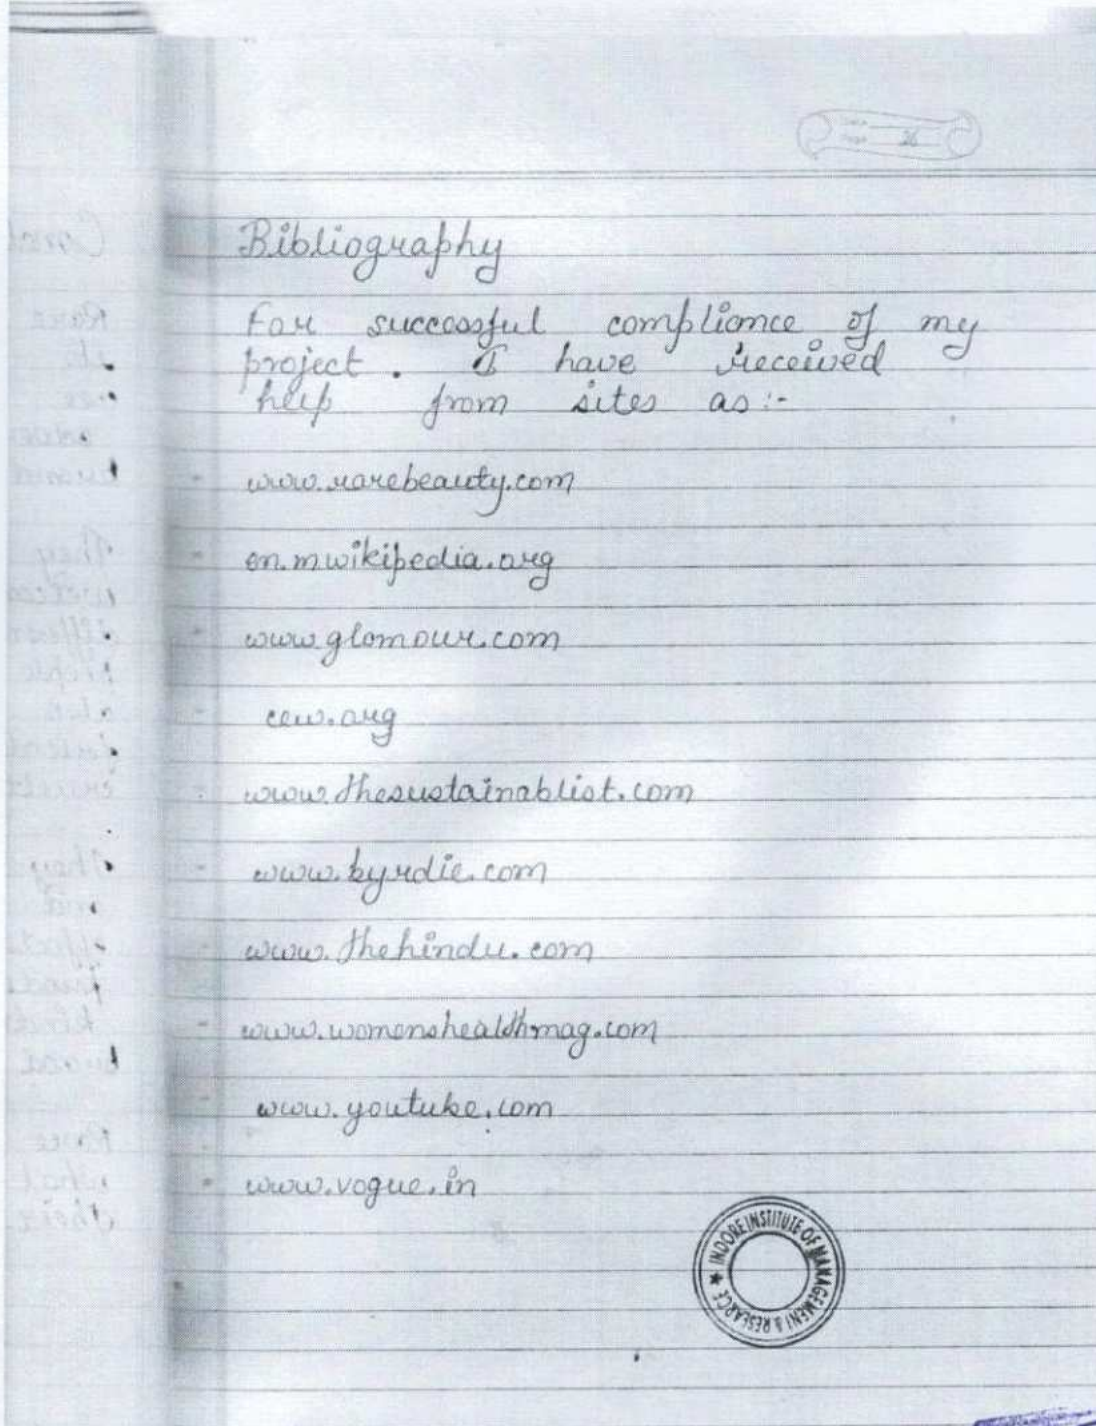 26
Bibliography
For successful compliance of my
project. I have received
help from sites as:-
- www.rarebeauty.com
- en.m.wikipedia.org
- www.glamour.com
- cew.org
- www.thesustainablist.com
- www.byrdie.com
- www.thehindu.com
- www.womenshealthmag.com
- www.youtube.com
- www.vogue.in
INDORE INSTITUTE OF MANAGEMENT & RESEARCH ★